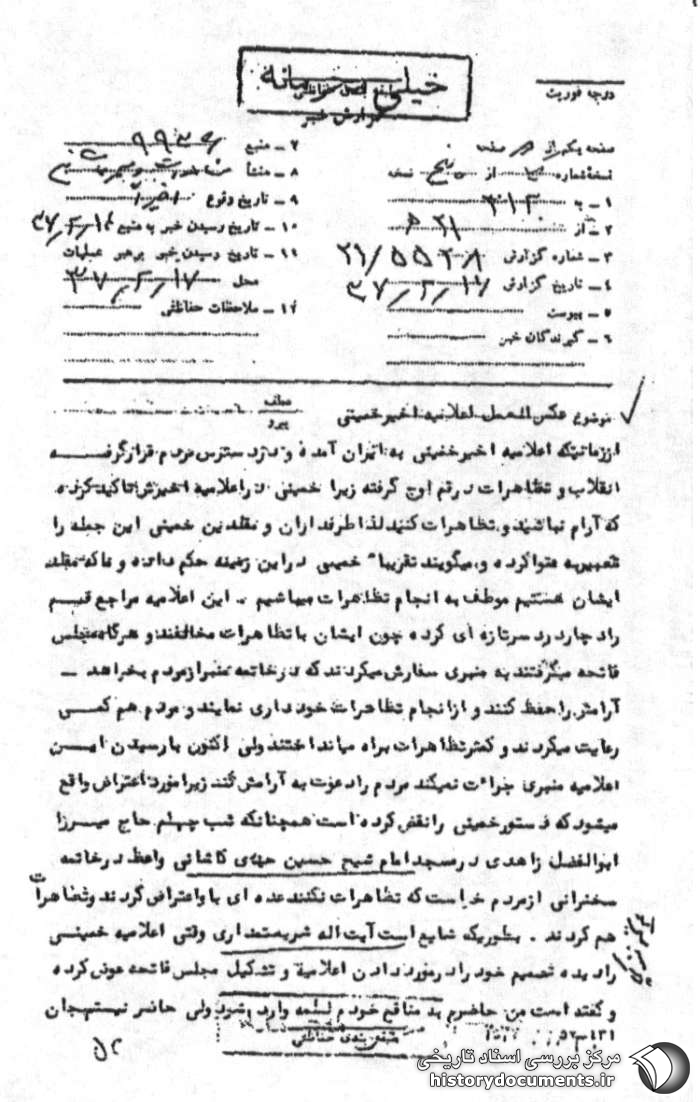 خیلی محرمانه
گزارش خبر
درجه فوریت
صفحه یکم از صفحه
نسخه شماره از پنج نسخه
۱ - به ۳۱۲
۲ - از ۲۱ ه
۳ - شماره گزارش ۲۱/۵۵۲۰۸
۴ - تاریخ گزارش
۵ - پیوست
۶ - گیرندگان خبر
۷ - منبع
۸ - منشأ
۹ - تاریخ وقوع اخیرا
۱۰ - تاریخ رسیدن خبر به منبع
۱۱ - تاریخ رسیدن خبر برهبر عملیات
محل ۳۷/۲/۱۷
۱۲ - ملاحظات حفاظتی
موضوع عکس العمل اعلامیه اخیر خمینی
عطف
پیرو
اززمانیکه اعلامیه اخیرخمینی به ایران آمده و در دسترس مردم قرارگرفتــه
انقلاب و تظاهرات در قم اوج گرفته زیرا خمینی در اعلامیه اخیرش تاکید کرده
که آرام نباشید و تظاهرات کنید لذا طرفداران و مقلدین خمینی این جمله را
تعبیر به فتوا کرده و میگویند تقریبا" خمینی در این زمینه حکم داده و ماکه مقلد
ایشان هستیم موظف به انجام تظاهرات میباشیم . این اعلامیه مراجع قــم
را دچار دردسر تازه ای کرده چون ایشان با تظاهرات مخالفند و هرگاه مجلس
فاتحه میگرفتند به منبری سفارش میکردند که در خاتمه منبر از مردم بخواهد -
آرامش را حفظ کنند و از انجام تظاهرات خودداری نمایند و مردم هم کمــی
رعایت میکردند و کمتر تظاهرات براه میانداختند ولی اکنون با رسیدن ایــن
اعلامیه منبری جراءت نمیکند مردم را دعوت به آرامش کند زیرا مورد اعتراض واقع
میشود که دستور خمینی را نقض کرده است همچنانکه شب چهلم حاج میــرزا
ابوالفضل زاهدی در مسجد امام شیخ حسین کاشانی واعظ در خاتمه
سخنرانی از مردم خواست که تظاهرات نکنند عده ای با و اعتراض کردند و تظاهرات
هم کردند . بطوریکه شایع است آیت اله شریعتمداری وقتی اعلامیه خمینــی
را دیده تصمیم خود را در مورد دادن اعلامیه و تشکیل مجلس فاتحه عوض کرده
و گفته است من حاضرم به منافع خودم لطمه وارد بشود ولی حاضر نیستم جان
طبقه بندی حفاظتی
مرکز بررسی اسناد تاریخی
historydocuments.ir